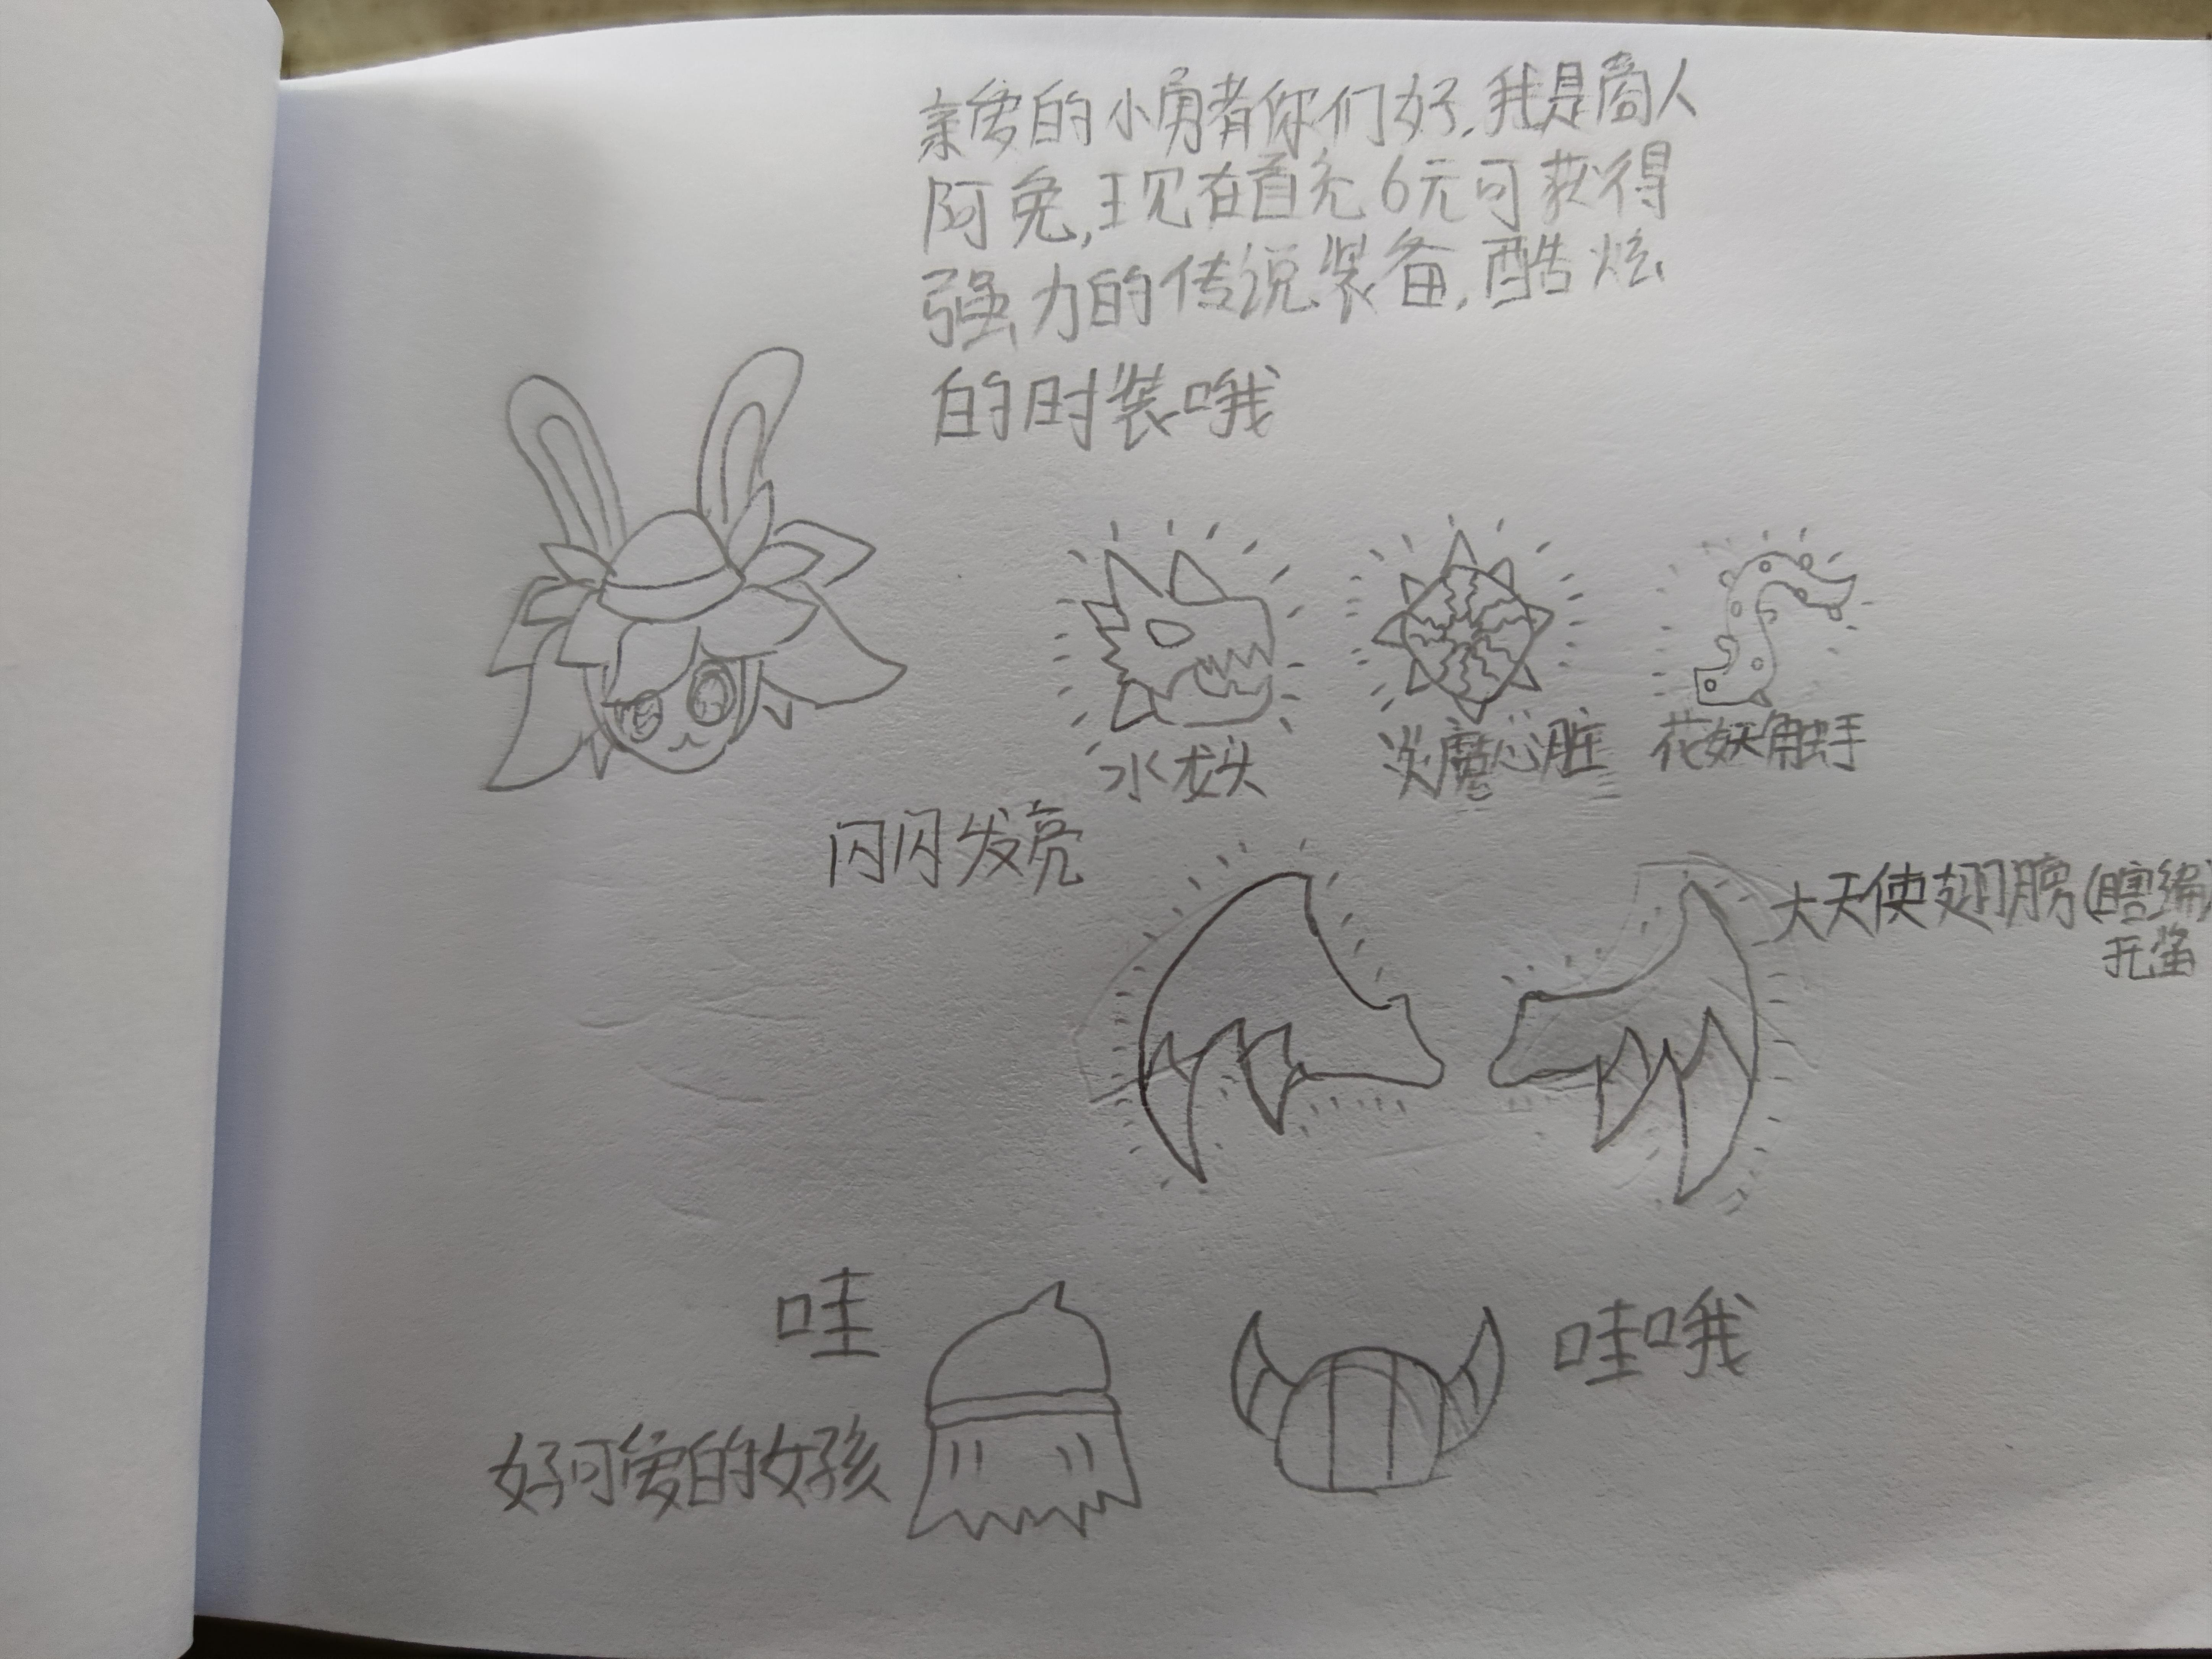 亲爱的小勇者你们好，我是商人
阿兔，现在首充6元可获得
强力的传说装备，酷炫
的时装哦
水龙头
炎魔心脏
花妖触手
闪闪发亮
大天使翅膀(瞎编
哇
哇哦
好可爱的女孩